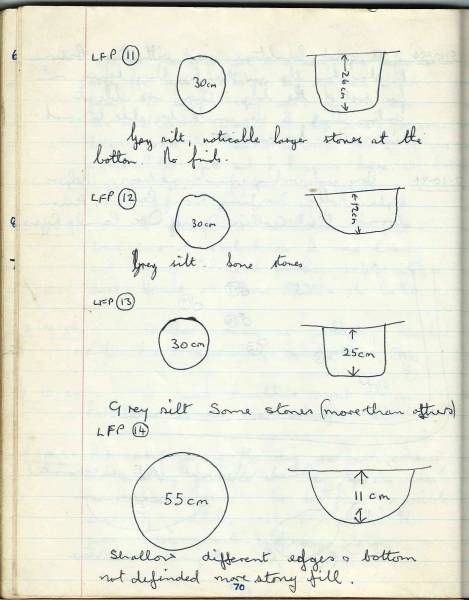 LFP 11
30cm
26cm
Grey silt, noticable larger stones at the
bottom. No finds.
LFP 12
30cm
Grey silt. Some stones
LFP 13
30cm
25cm
Grey silt Some stones (more than others)
LFP 14
55cm
11cm
Shallow different edges & bottom
not definded more stony fill.
70